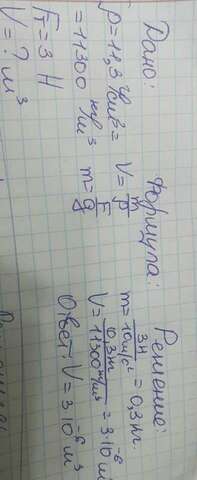 Дано:
ρ=11,3 г/см³=
=11300 кг/м³
Fт=3 Н
V=? м³
Формула:
V=m/ρ
m=F/g
Решение:
m=3Н/10м/с²=0,3кг.
V=0,3кг/11300кг/м³=3·10⁻⁶м³
Ответ: V=3·10⁻⁶м³